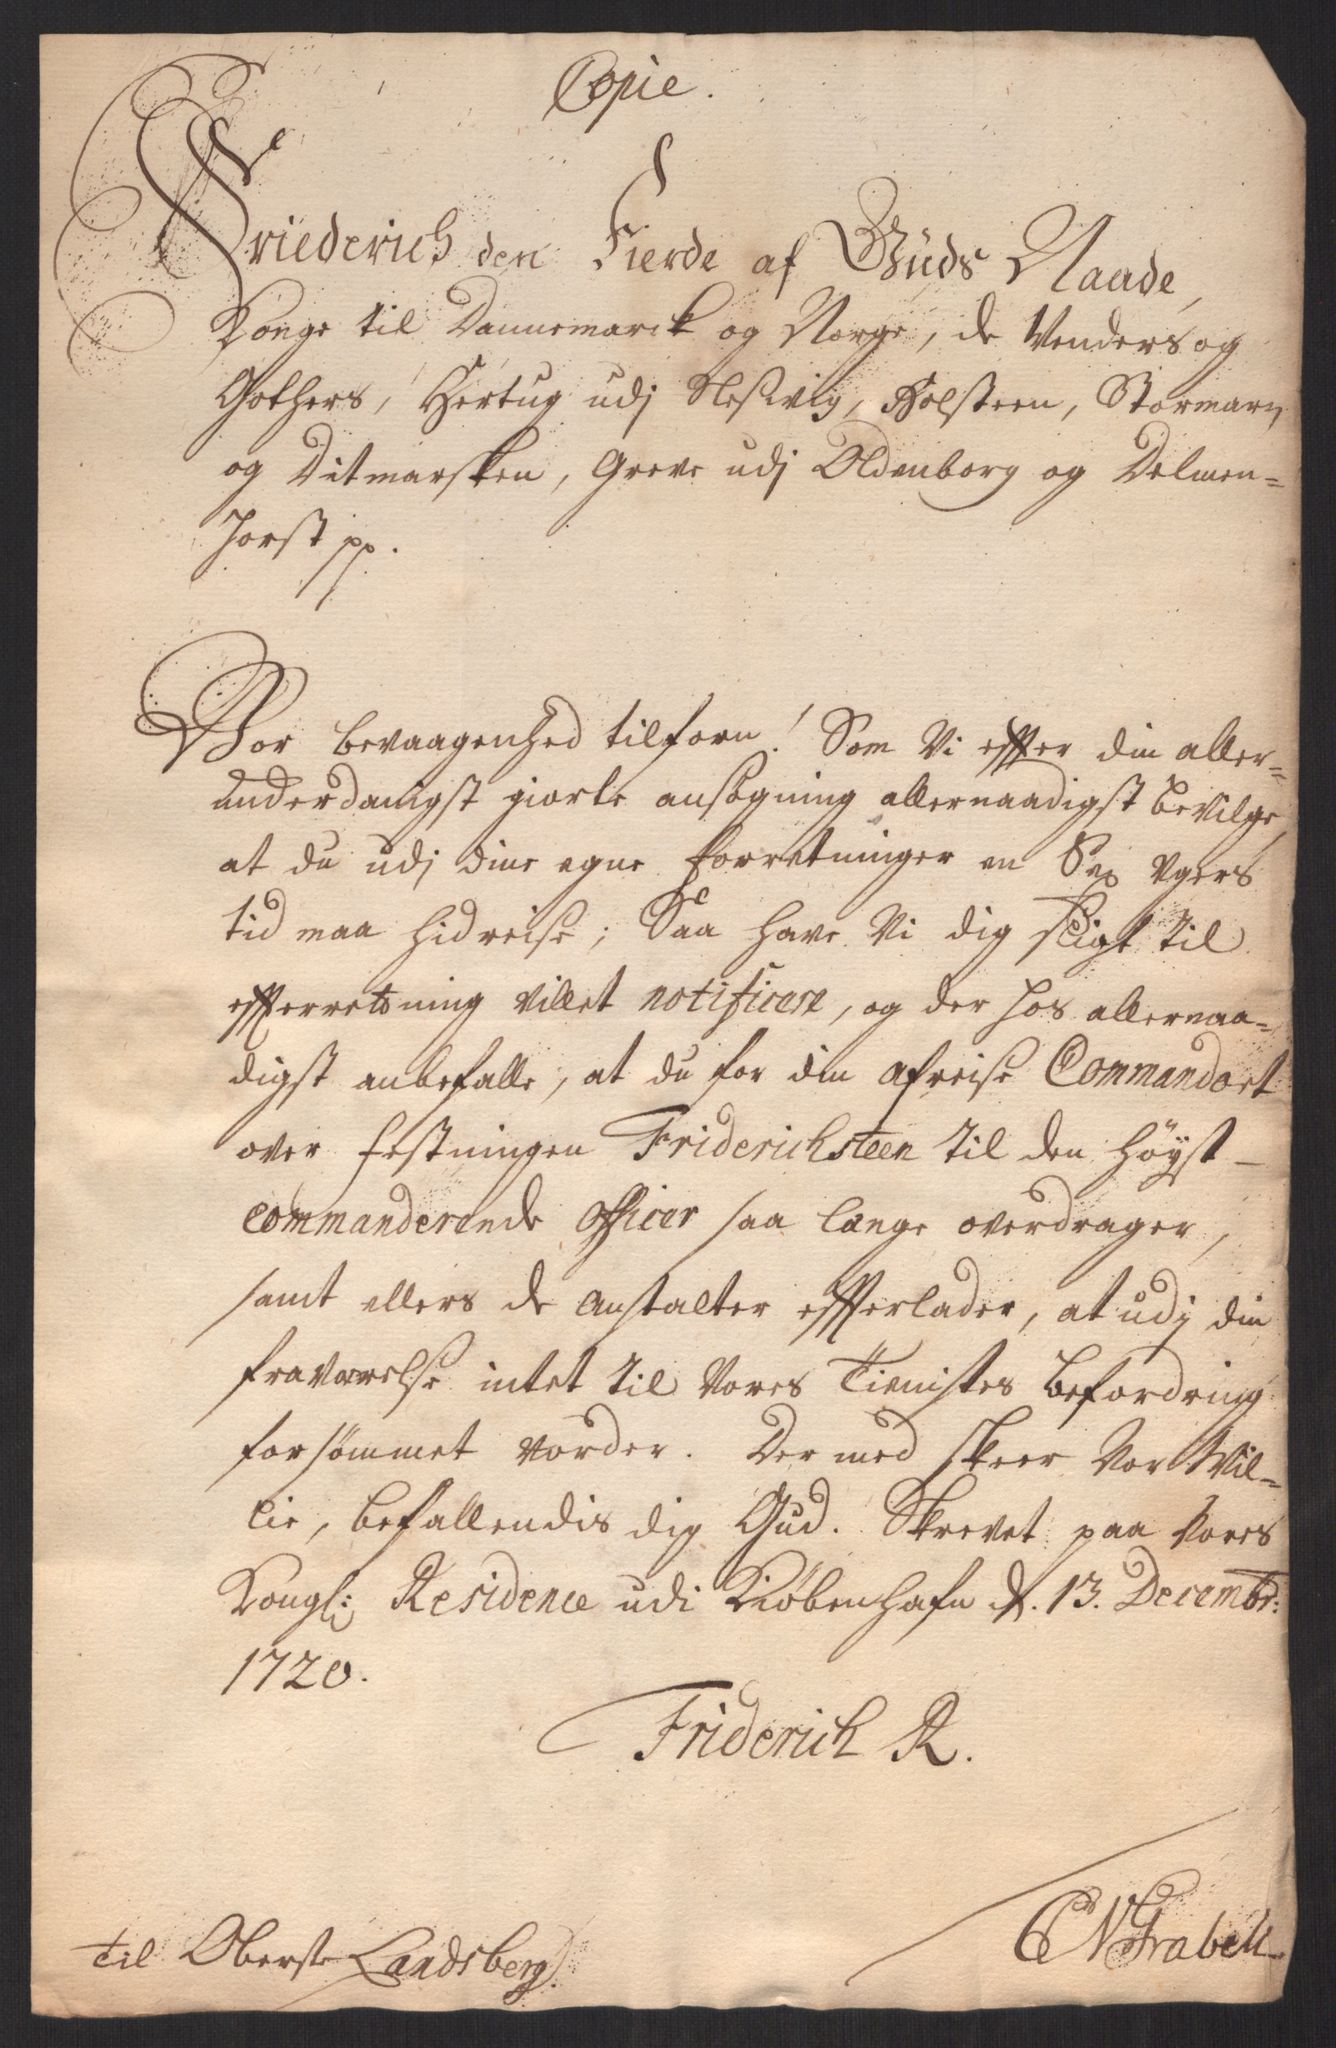 Copie.
Friederich den Fierde af Guds Naade,
Konge til Dannemarck og Norge, de Venders og
Gothers, Hertug udj Sleßvig, Holsteen, Stormarn
og Ditmarsken, Greve udj Oldenborg og Delmen=
horst pp.
Vor bevaagenhed tilforn! Som Vi effter din aller=
underdanigst giorte ansøgning allernaadigst bevilge,
at du udj dine egne forretninger en Sex Ugers
tid maa hidreise; Saa have Vi dig sligt til
efferretning villet notificere, og der hos allernaa=
digst anbefalle, at du for din afreise Commandoet
over festningen Friderichsteen til den höyst-
commanderende Officer saa længe overdrager,
samt ellers de Anstalter effterlader, at udj din
fraværelse intet til Vores Tienistes befordring
forsømmet vorder. Der med skeer Vor Wil=
lie, befallendis dig Gud. Skrevet paa Vores
Kongl: Residence udi Kiøbenhafn d. 13. Decembr:
1720.
Friderich R.
CNGrabell
Til Oberste Landsberg.